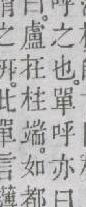 呼之也。單呼亦曰
曰。盧在柱端。如都
之枅。此單言